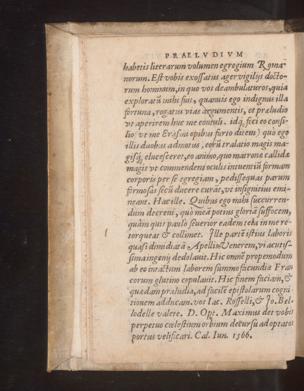 PRAELVDIVM
habetis literarum volumen egregium Roma-
norum. Est vobis exossatus ager vigilijs docto-
rum hominum, in quo vos deambulaturos, quia
exploratũ mihi fuit, quamuis ego indignus illa
fortuna, rogatus vias argumentis, et præludio
vt aperirem huc me contuli. idq́ feci eo consi-
lio vt me Erasmi opibus furto ditem) quò ego
illis duobus adnotus, eorũ
gisq́ elucesceret, eo animo, quo matronæ callidæ
magis vt commendent oculis intuentiũ firmam
corporis per se egregiam, pedissequas parum
formosas secũ ducere curãt, vt insignitius emi-
neant. Hac ille. Quibus ego mihi succurren-
dum decreui, quò mea potius gloriã suffocem,
quàm quis paulò seuerior eadem scita in me re-
torqueat & collimet. Ille paris istius laboris
quasi dimidiatã Apellis Venerem, vi acutis-
sima ingenij dedolauit. Hic omne propemodum
ab eo intactum laborem summo facundiæ Fran-
corum glutino copulauit. Hic finem faciam, &
quædam præludia, ad facile epistolarum cogni-
tionem adducam. vos Iac. Roffelli, & Io. Bel-
lodelle valete. D. Opt. Maximus det vobis
perpetuo cælestium orbium decursu ad optatos
portus velificari. Cal. Iun. 1566.